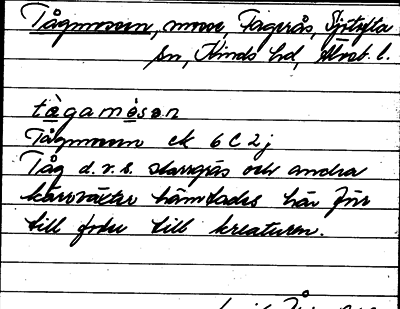 Tågmossen, mosse, Fagerås, Sjötofta
sn, Kinds hd, Älvsb. l.
tågamåsan
Tågmossen ek 6C2j
Tåg d.v.s. starrgräs och andra
kärrväxter hämtades här förr
till foder till kreaturen.